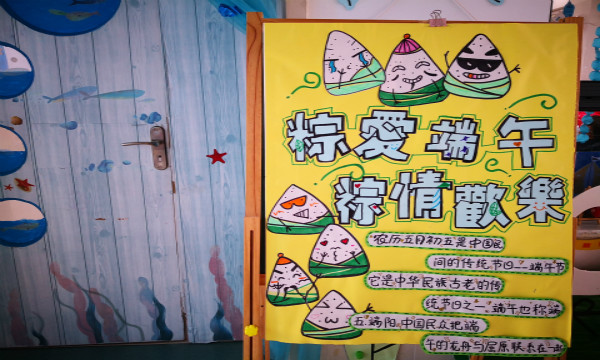 粽愛端午
粽情歡樂
农历五月初五是中国民
间的传统节日——端午节
它是中华民族古老的传
统节日之一。端午也称端
五,端阳。中国民众把端
午的龙舟与屈原联系在一起